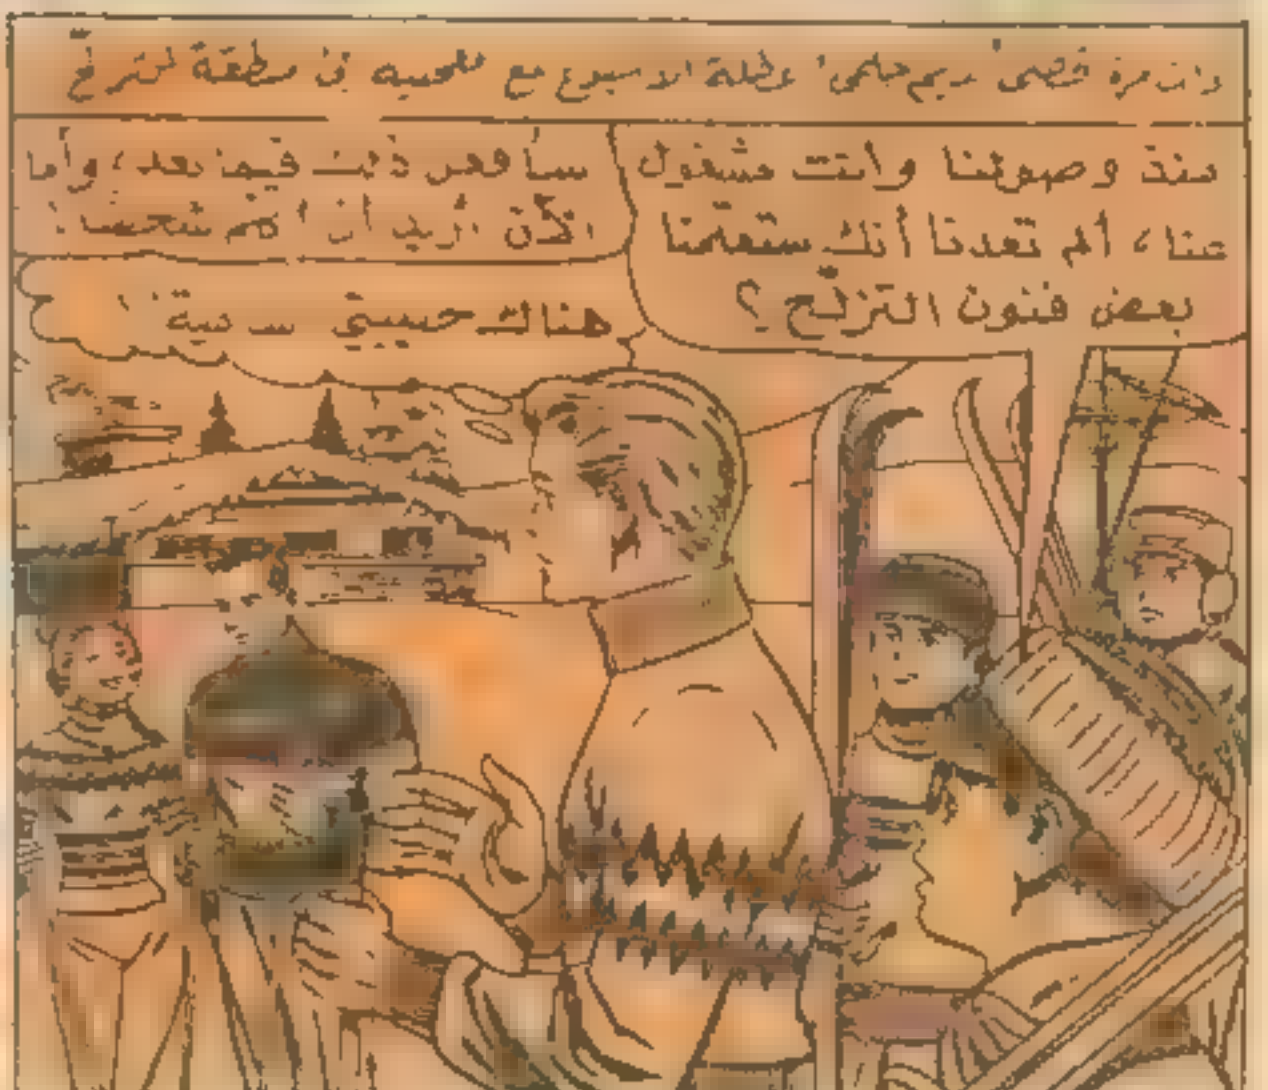 ذات مرة قضى "ريم حلمي" عطلة الاسبوع مع محبيه في منطقة للتزلج
منذ وصولنا وأنت مشغول
عنا، ألم تعدنا أنك ستعلمنا
بعض فنون التزلج؟
سأفعل ذلك فيما بعد، وأما
الآن أريد أن أهم شخصا
هناك حسبي